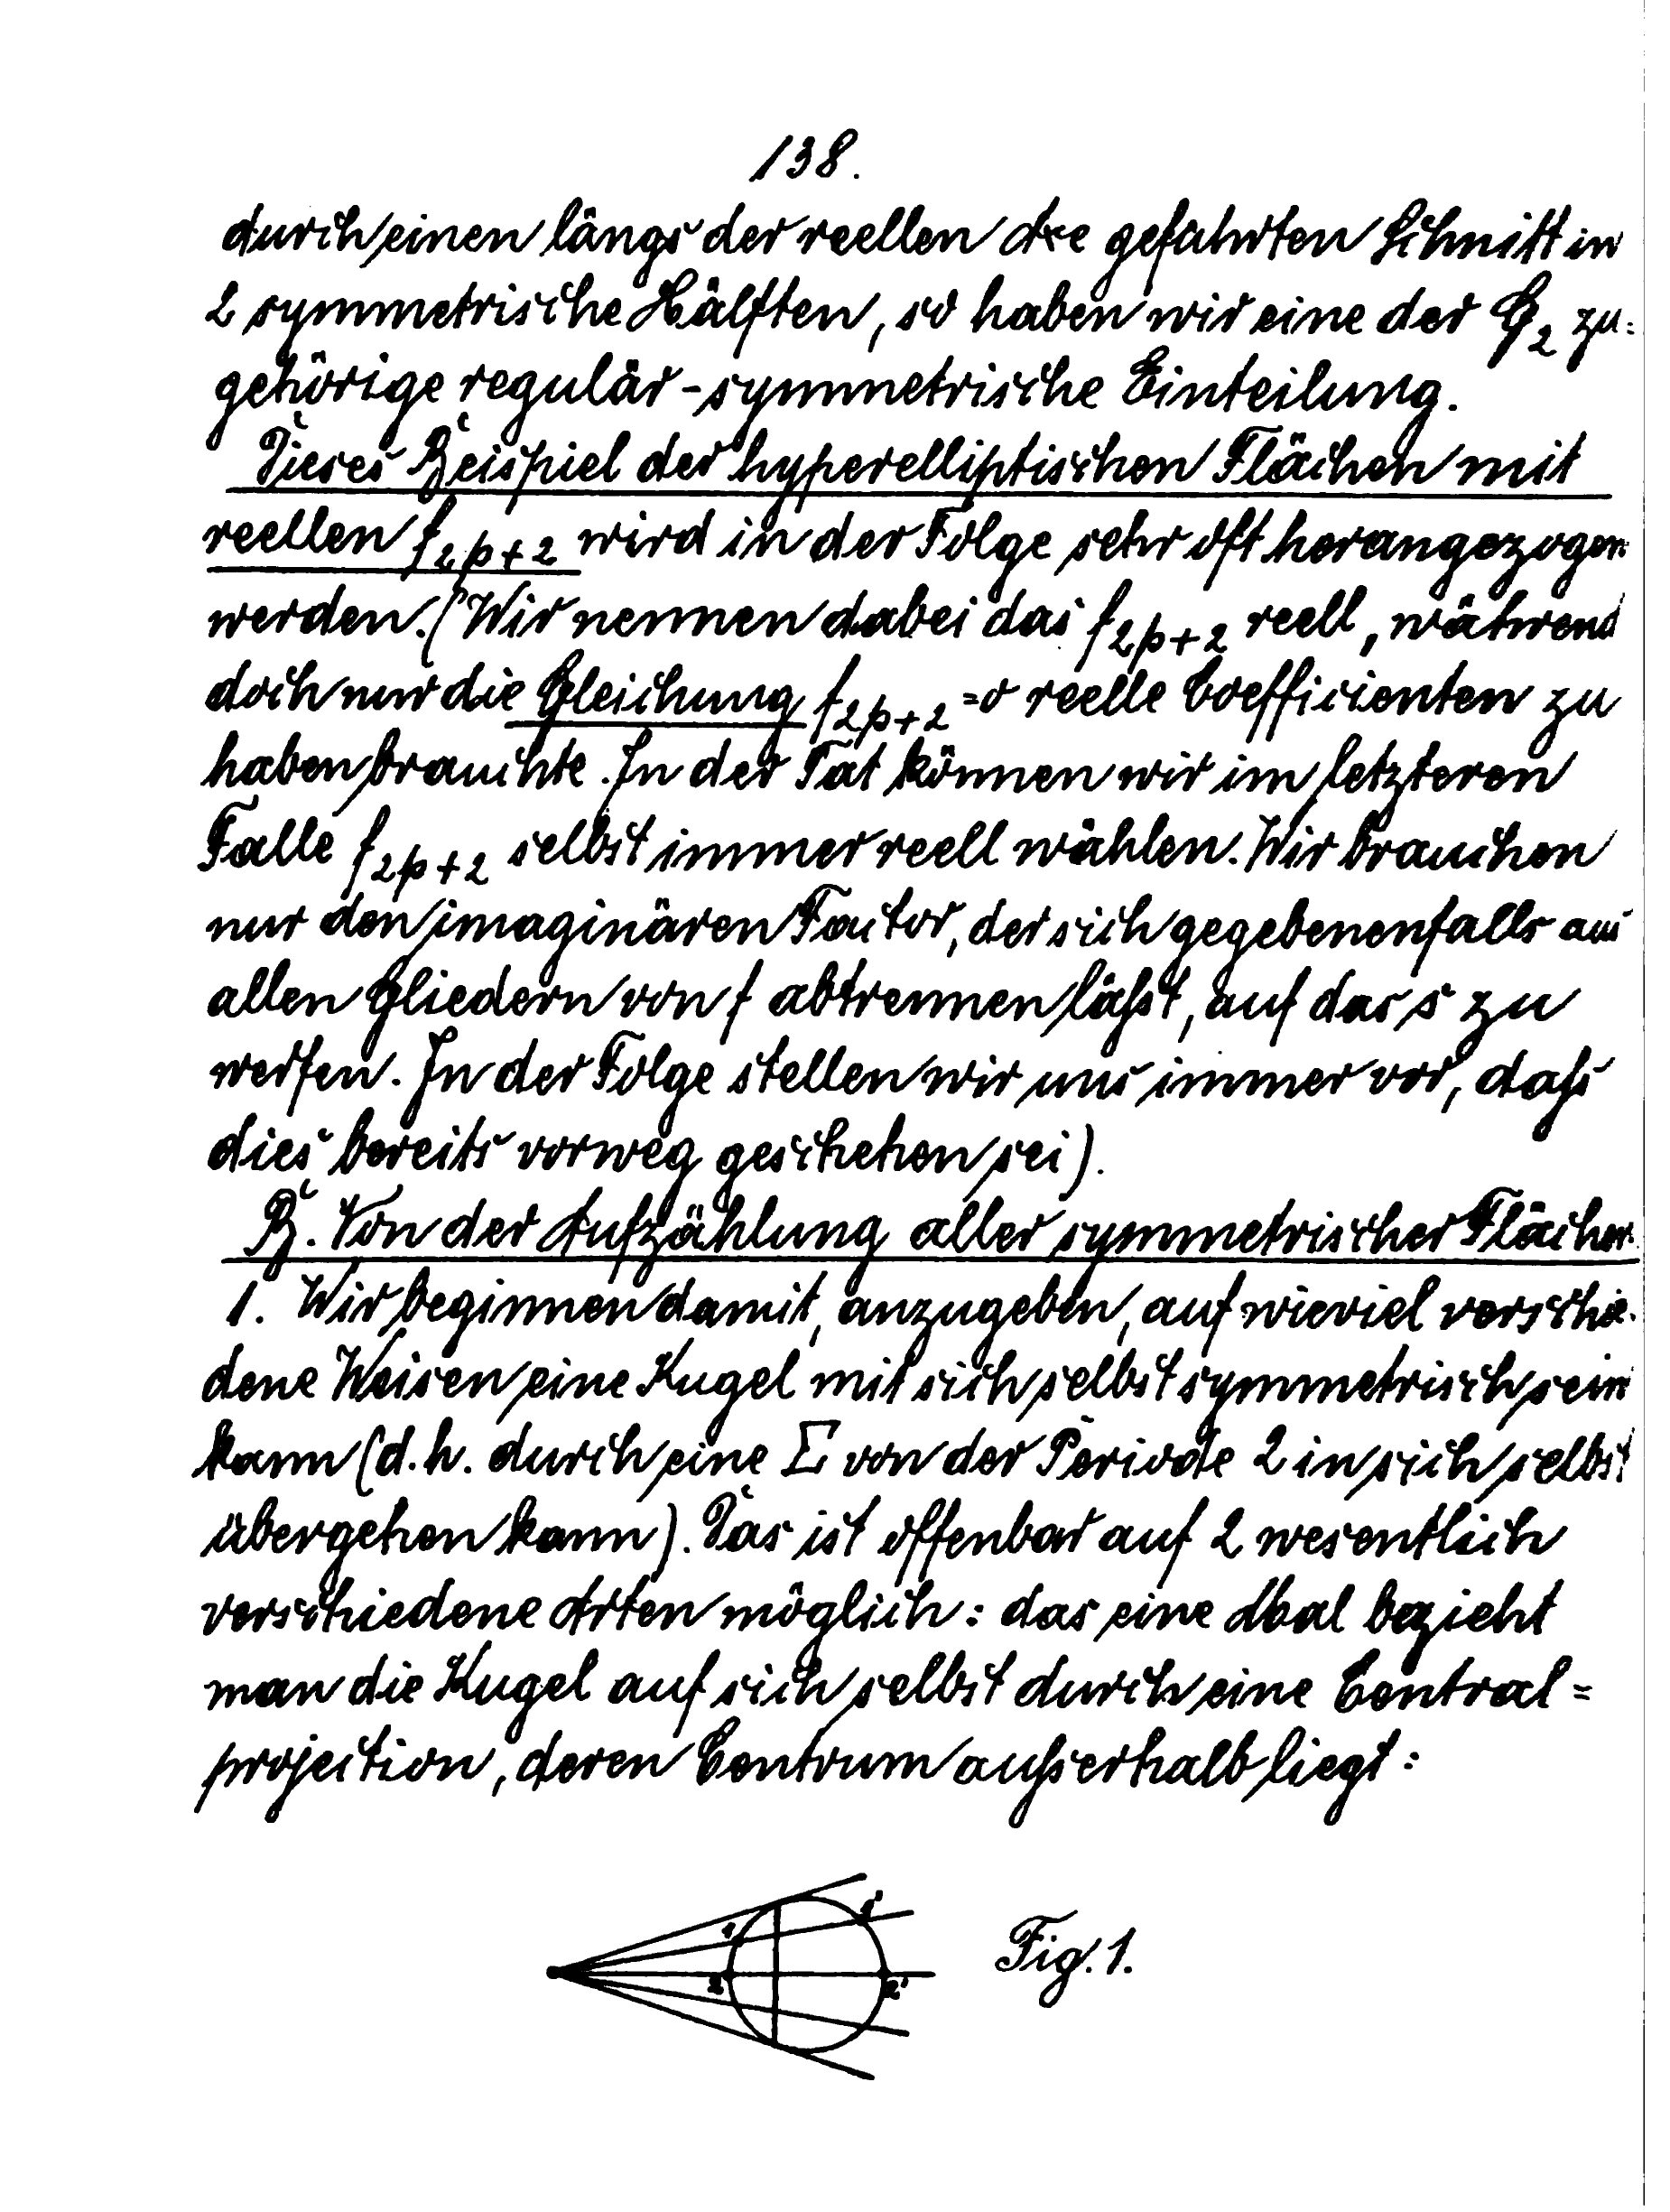 138.
durch einen längs der reellen Axe geführten Schnitt in
2 symmetrische Hälften, so haben wir eine der G₂ zu=
gehörige regulär-symmetrische Einteilung.
Dieses Beispiel der hyperelliptischen Flächen mit
reellen f₂ₚ₊₂ wird in der Folge sehr oft herangezogen
werden. (Wir nennen dabei das f₂ₚ₊₂ reell, während
doch nur die Gleichung f₂ₚ₊₂ = 0 reelle Coefficienten zu
haben brauchte. In der Tat können wir im letzteren
Falle f₂ₚ₊₂ selbst immer reell wählen. Wir brauchen
nur den imaginären Factor, der sich gegebenenfalls aus
allen Gliedern von f abtrennen läßt, auf das s zu
werfen. In der Folge stellen wir uns immer vor, daß
dies bereits vorweg geschehen sei).
B. Von der Aufzählung aller symmetrischer Flächen.
1. Wir beginnen damit, anzugeben, auf wieviel verschie-
dene Weisen eine Kugel mit sich selbst symmetrisch sein
kann (d.h. durch eine Σ von der Periode 2 in sich selbst
übergehen kann). Das ist offenbar auf 2 wesentlich
verschiedene Arten möglich: das eine Mal bezieht
man die Kugel auf sich selbst durch eine Central=
projection, deren Centrum außerhalb liegt:
1 1'
2 2'
Fig. 1.